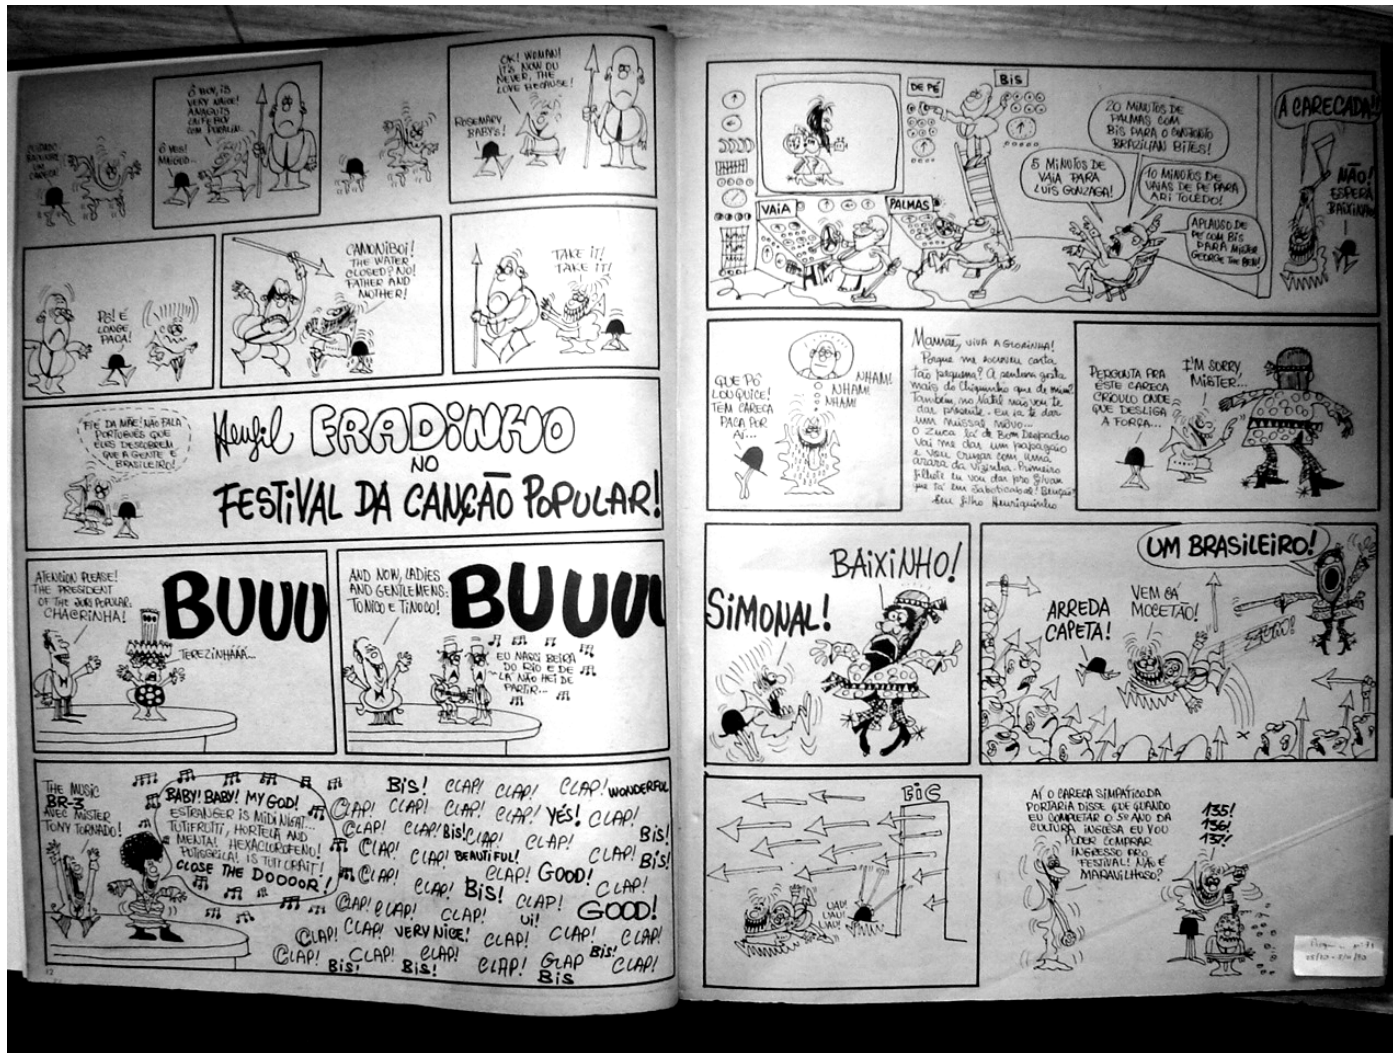 CUIDADO
BAIXINHO
UM
CARECA!
Ô BOY, IS
VERY NAICE!
COM
Ô YES!
OK! WOMAN!
IT'S NOW OU
NEVER, THE
LOVE BECAUSE!
ROSEMARY
BABY'S!
PÔ! É
LONGE
PACA!
CAMONIBOI!
THE WATER
CLOSED? NO!
FATHER AND
MOTHER!
TAKE IT!
TAKE IT!
FIÉ DA MÃE! NÃO FALA
PORTUGUÊS QUE
ELES DESCOBREM
QUE A GENTE É
BRASILEIRO!
Henfil FRADiNHO
NO
FESTiVAL DA CANÇÃO POPULAR!
ATENCION PLEASE!
THE PRESIDENT
OF THE JURI POPULAR:
CHACRINHA!
BUUU
TEREZINHÁÁÁ...
AND NOW, LADIES
AND GENTLEMENS:
TONICO E TINOCO!
BUUUU
EU NASSI BEIRA
DO RIO E DE
LÁ NÃO HEI DE
PARTIR...
THE MUSIC
BR-3
AVEC MISTER
TONY TORNADO!
BABY! BABY! MY GOD!
ESTRANGER IS MIDINIGAT...
TUTIFRUTTI, HORTELÃ AND
MENTA! HEXACLOROFENO!
PUTISGRILA! IS TUTI ORAIT!
CLOSE THE DOOOOR!
BiS! CLAP! CLAP! CLAP! WONDERFUL
CLAP! CLAP! CLAP! CLAP! YÉS! CLAP!
CLAP! CLAP! BiS! CLAP! CLAP! BiS!
CLAP! CLAP! BEAUTIFUL! CLAP! BiS!
CLAP! CLAP! BiS! CLAP! GOOD! CLAP!
CLAP! CLAP! CLAP! Ui! GOOD!
CLAP! CLAP! VERY NiCE! CLAP! CLAP! CLAP!
CLAP! CLAP! CLAP! CLAP! BiS! CLAP!
BiS! BiS! CLAP! BiS
12
DE PÉ
BiS
VAIA
PALMAS
20 MINUTOS DE
PALMAS COM
BIS PARA O CONJUNTO
BRAZILIAN BITES!
5 MINUTOS DE
VAIA PARA
LUIS GONZAGA!
10 MINUTOS DE
VAIAS DE PÉ PARA
ARI TOLEDO!
APLAUSO DE
PÉ COM BIS
PARA MISTER
GEORGE THE BEN!
A CARECADA!!
NÃO!
ESPERA
BAIXINHO!
QUE PÔ
LOUQUICE!
TEM CARECA
PACA POR
AÍ...
NHAM!
NHAM!
NHAM!
Mamãe, VIVA A GLORINHA!
Porque me escreveu carta
tão pequena? A senhora gosta
mais do Chiquinho que de mim?
Também no Natal não vou te
dar presente. Eu ia te dar
um missal novo...
O Zuca lá de Bom Despacho
vai me dar um papagaio
e vou cruzar com uma
arara da vizinha. Primeiro
filhote eu vou dar pro Givan
que tá em Jaboticabal! Benção!
Seu filho Henriquinho
PERGUNTA PRA
ÊSTE CARECA
CRIOULO ONDE
QUE DESLIGA
A FORÇA...
I'M SORRY,
MISTER...
SiMONAL!
BAIXiNHO!
UM BRASILEIRO!
ARREDA
CAPETA!
VEM CÁ
MOCETÃO!
ZUM!
FIC
UAU!
UAU!
UAU!
AÍ O CARECA SIMPÁTICO DA
PORTARIA DISSE QUE QUANDO
EU COMPLETAR O 5º ANO DA
CULTURA INGLESA EU VOU
PUDER COMPRAR
INGRESSO PRO
FESTIVAL! NÃO É
MARAVILHOSO?
135!
136!
137!